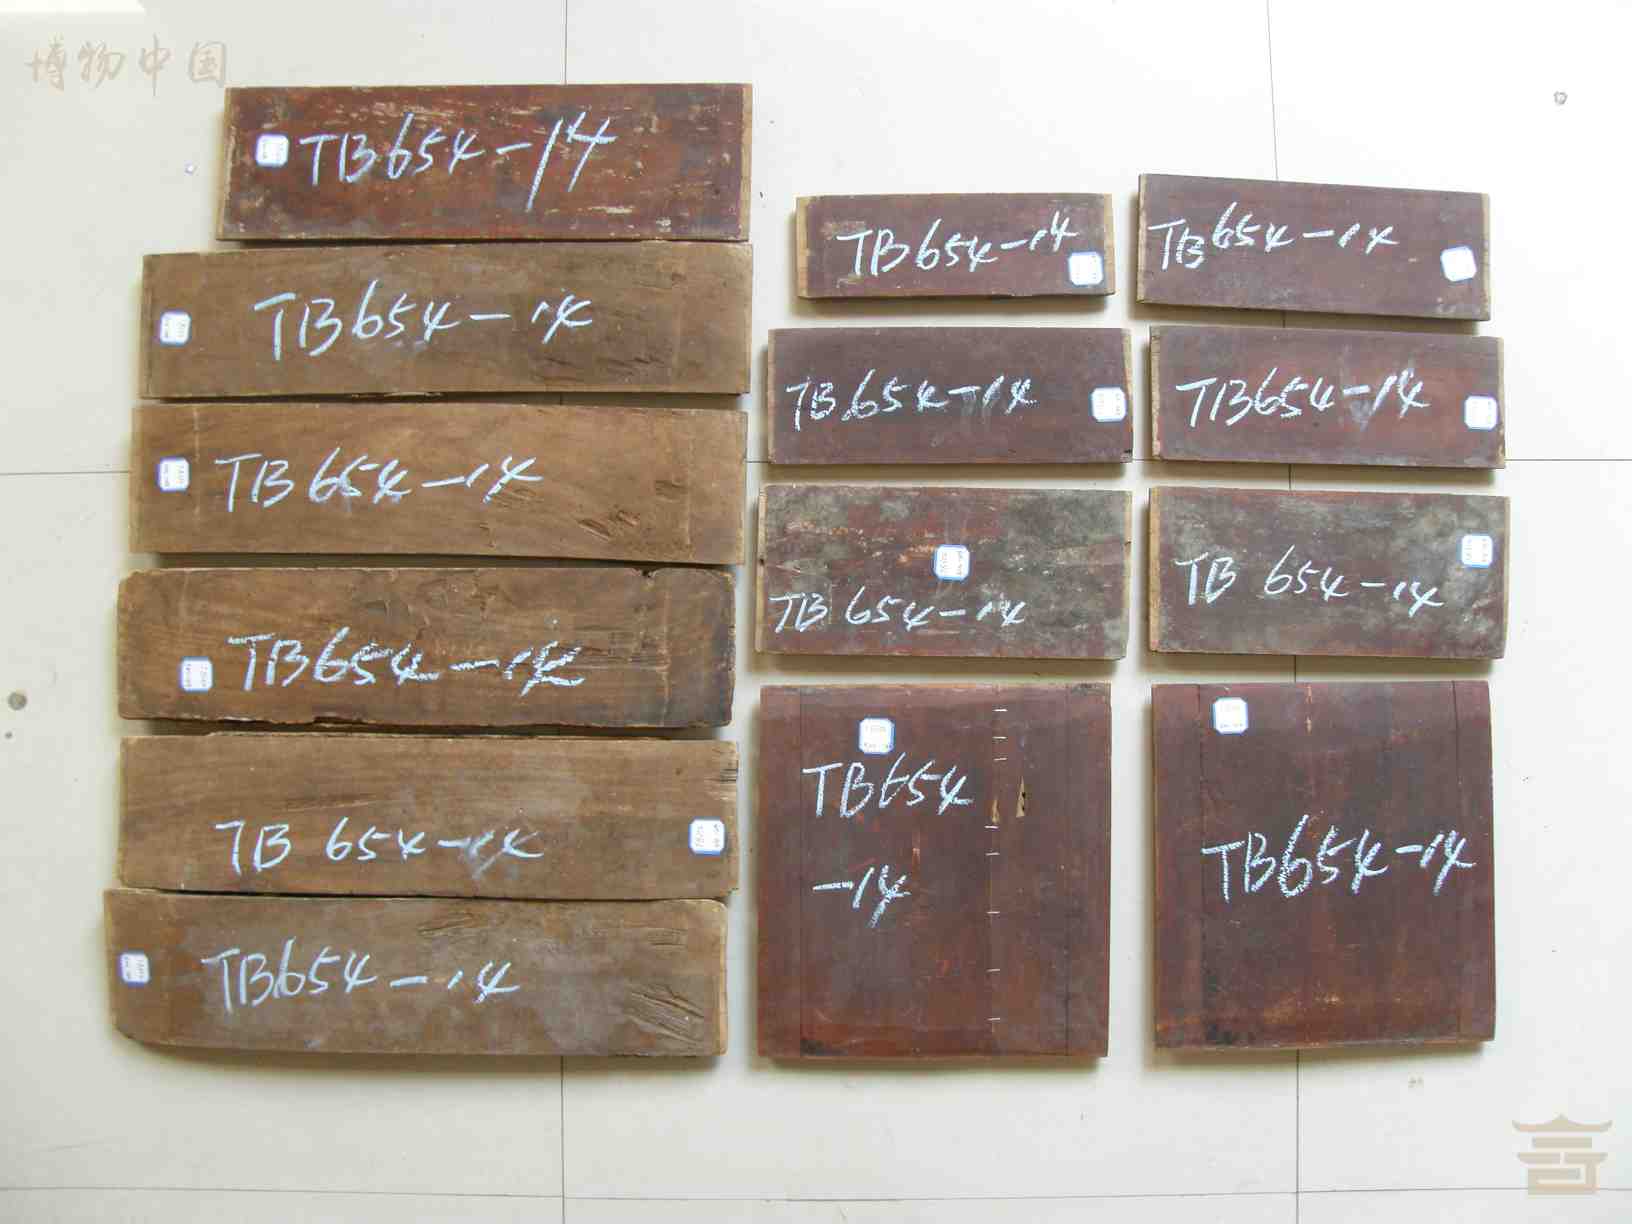 博物中国
TB654-14
TB654-14
TB654-14
TB654-14
TB654-14
TB654-14
TB654-14
TB654-14
TB654-14
TB654-14
TB654-14
TB654-14
TB654
-14
TB654-14